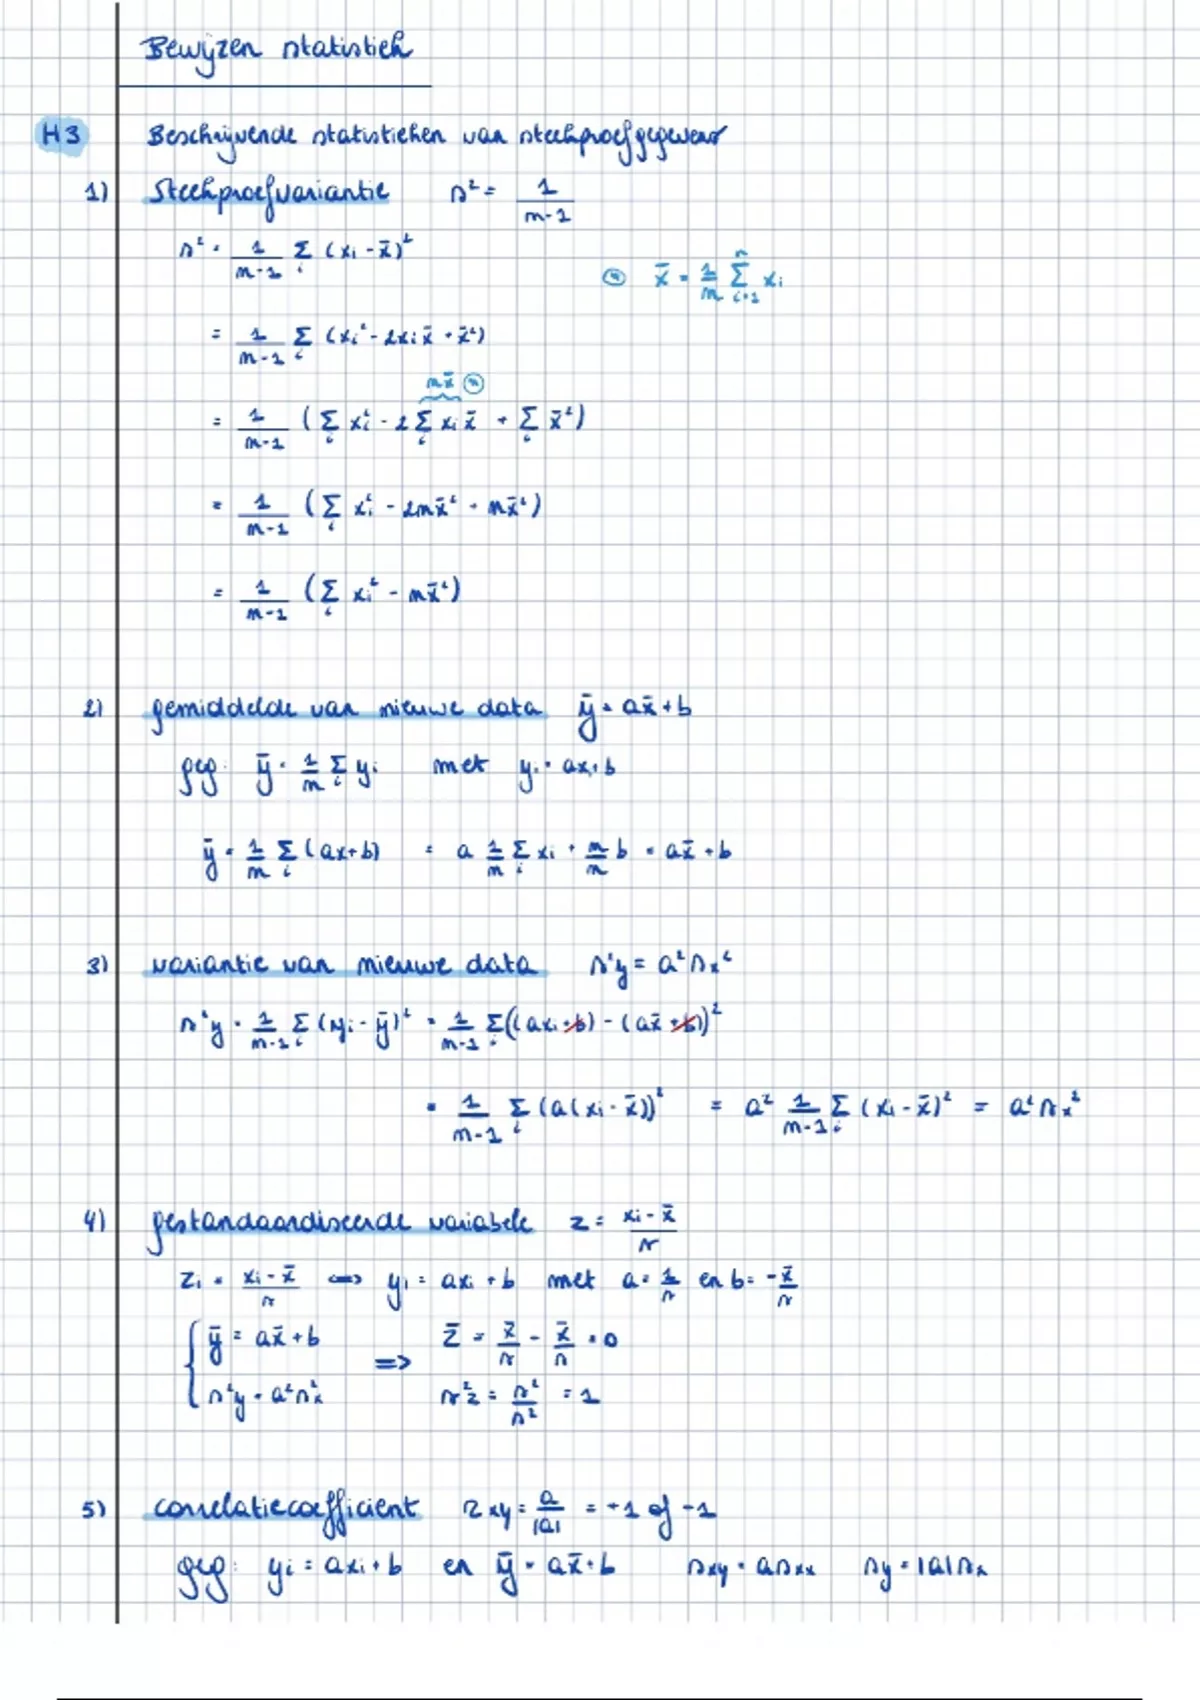 Bewijzen statistiek
H3 Beschrijvende statistieken van steekproefgegevens
1) Steekproefvariantie s² = 1/(n-1)
s² = 1/(n-1) Σ_i (xi - x̄)²
(*) x̄ = 1/n Σ_{i=1}^{n} xi
= 1/(n-1) Σ_i (xi² - 2xi x̄ + x̄²)
n x̄ (*)
= 1/(n-1) (Σ_i xi² - 2 Σ_i xi x̄ + Σ_i x̄²)
= 1/(n-1) (Σ_i xi² - 2n x̄² + n x̄²)
= 1/(n-1) (Σ_i xi² - n x̄²)
2) gemiddelde van nieuwe data ȳ = ax̄ + b
geg: ȳ = 1/n Σ_i yi met yi = axi + b
ȳ = 1/n Σ_i (ax+b) = a 1/n Σ_i xi + n/n b = ax̄ + b
3) variantie van nieuwe data s²y = a² sx²
s²y = 1/(n-1) Σ_i (yi - ȳ)² = 1/(n-1) Σ_i ((axi + b) - (ax̄ + b))²
= 1/(n-1) Σ_i (a(xi - x̄))² = a² 1/(n-1) Σ_i (xi - x̄)² = a² sx²
4) gestandaardiseerde variabele z = (xi - x̄)/s
zi = (xi - x̄)/s <=> yi = axi + b met a = 1/s en b = -x̄/s
{ ȳ = ax̄ + b => z̄ = x̄/s - x̄/s = 0
s²y = a² s²x s²z = s²/s² = 1
5) correlatiecoefficient rxy = a/|a| = +1 of -1
geg: yi = axi + b en ȳ = ax̄ + b sxy = a sxx sy = |a| sx